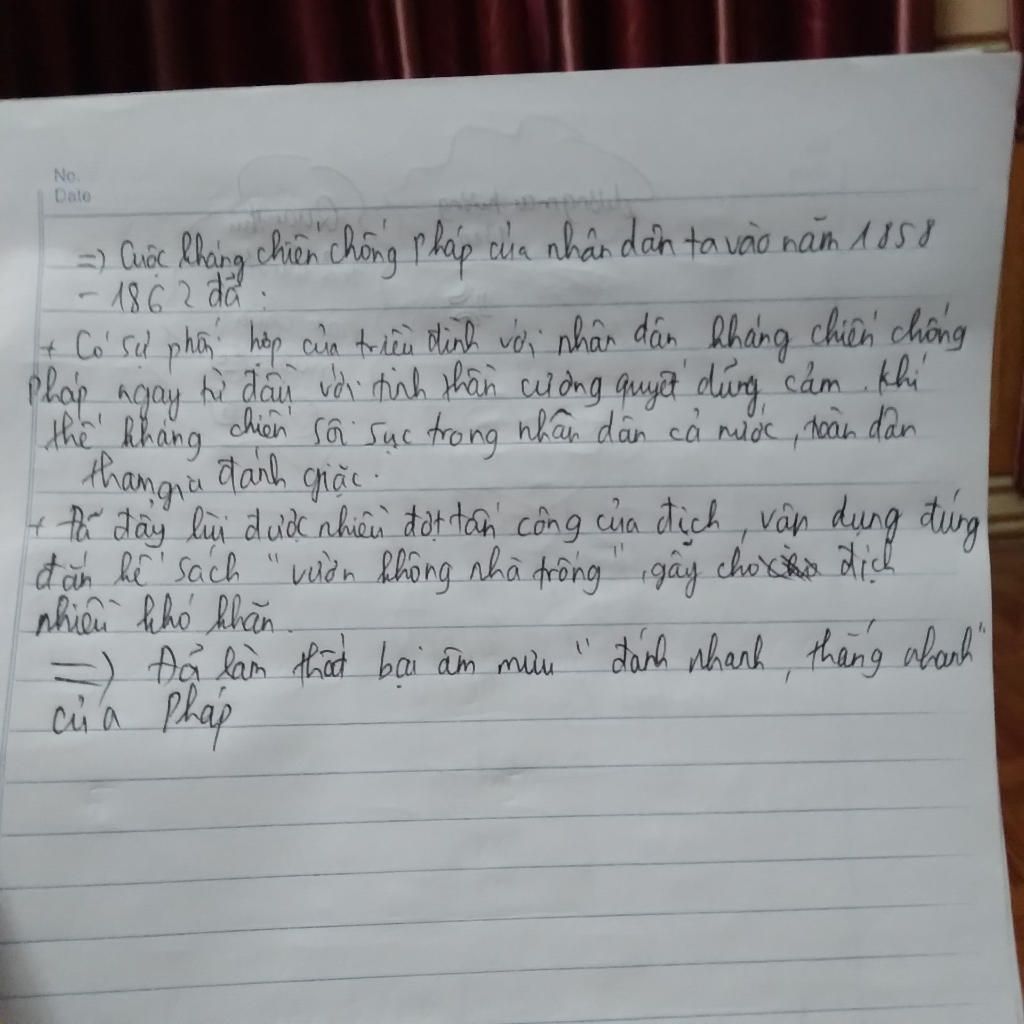 No.
Date
=) Cuộc kháng chiến chống Pháp của nhân dân ta vào năm 1858
- 1862 đã :
+ Có sự phối hợp của triều đình với nhân dân kháng chiến chống
Pháp ngay từ đầu với tinh thần cương quyết dũng cảm. khí
thế kháng chiến sôi sục trong nhân dân cả nước, toàn dân
tham gia đánh giặc.
+ Đã đẩy lùi được nhiều đợt tấn công của địch, vận dụng đúng
đắn kế sách "vườn không nhà trống", gây cho địch
nhiều khó khăn.
=) Đã làm thất bại âm mưu "đánh nhanh, thắng nhanh"
của Pháp